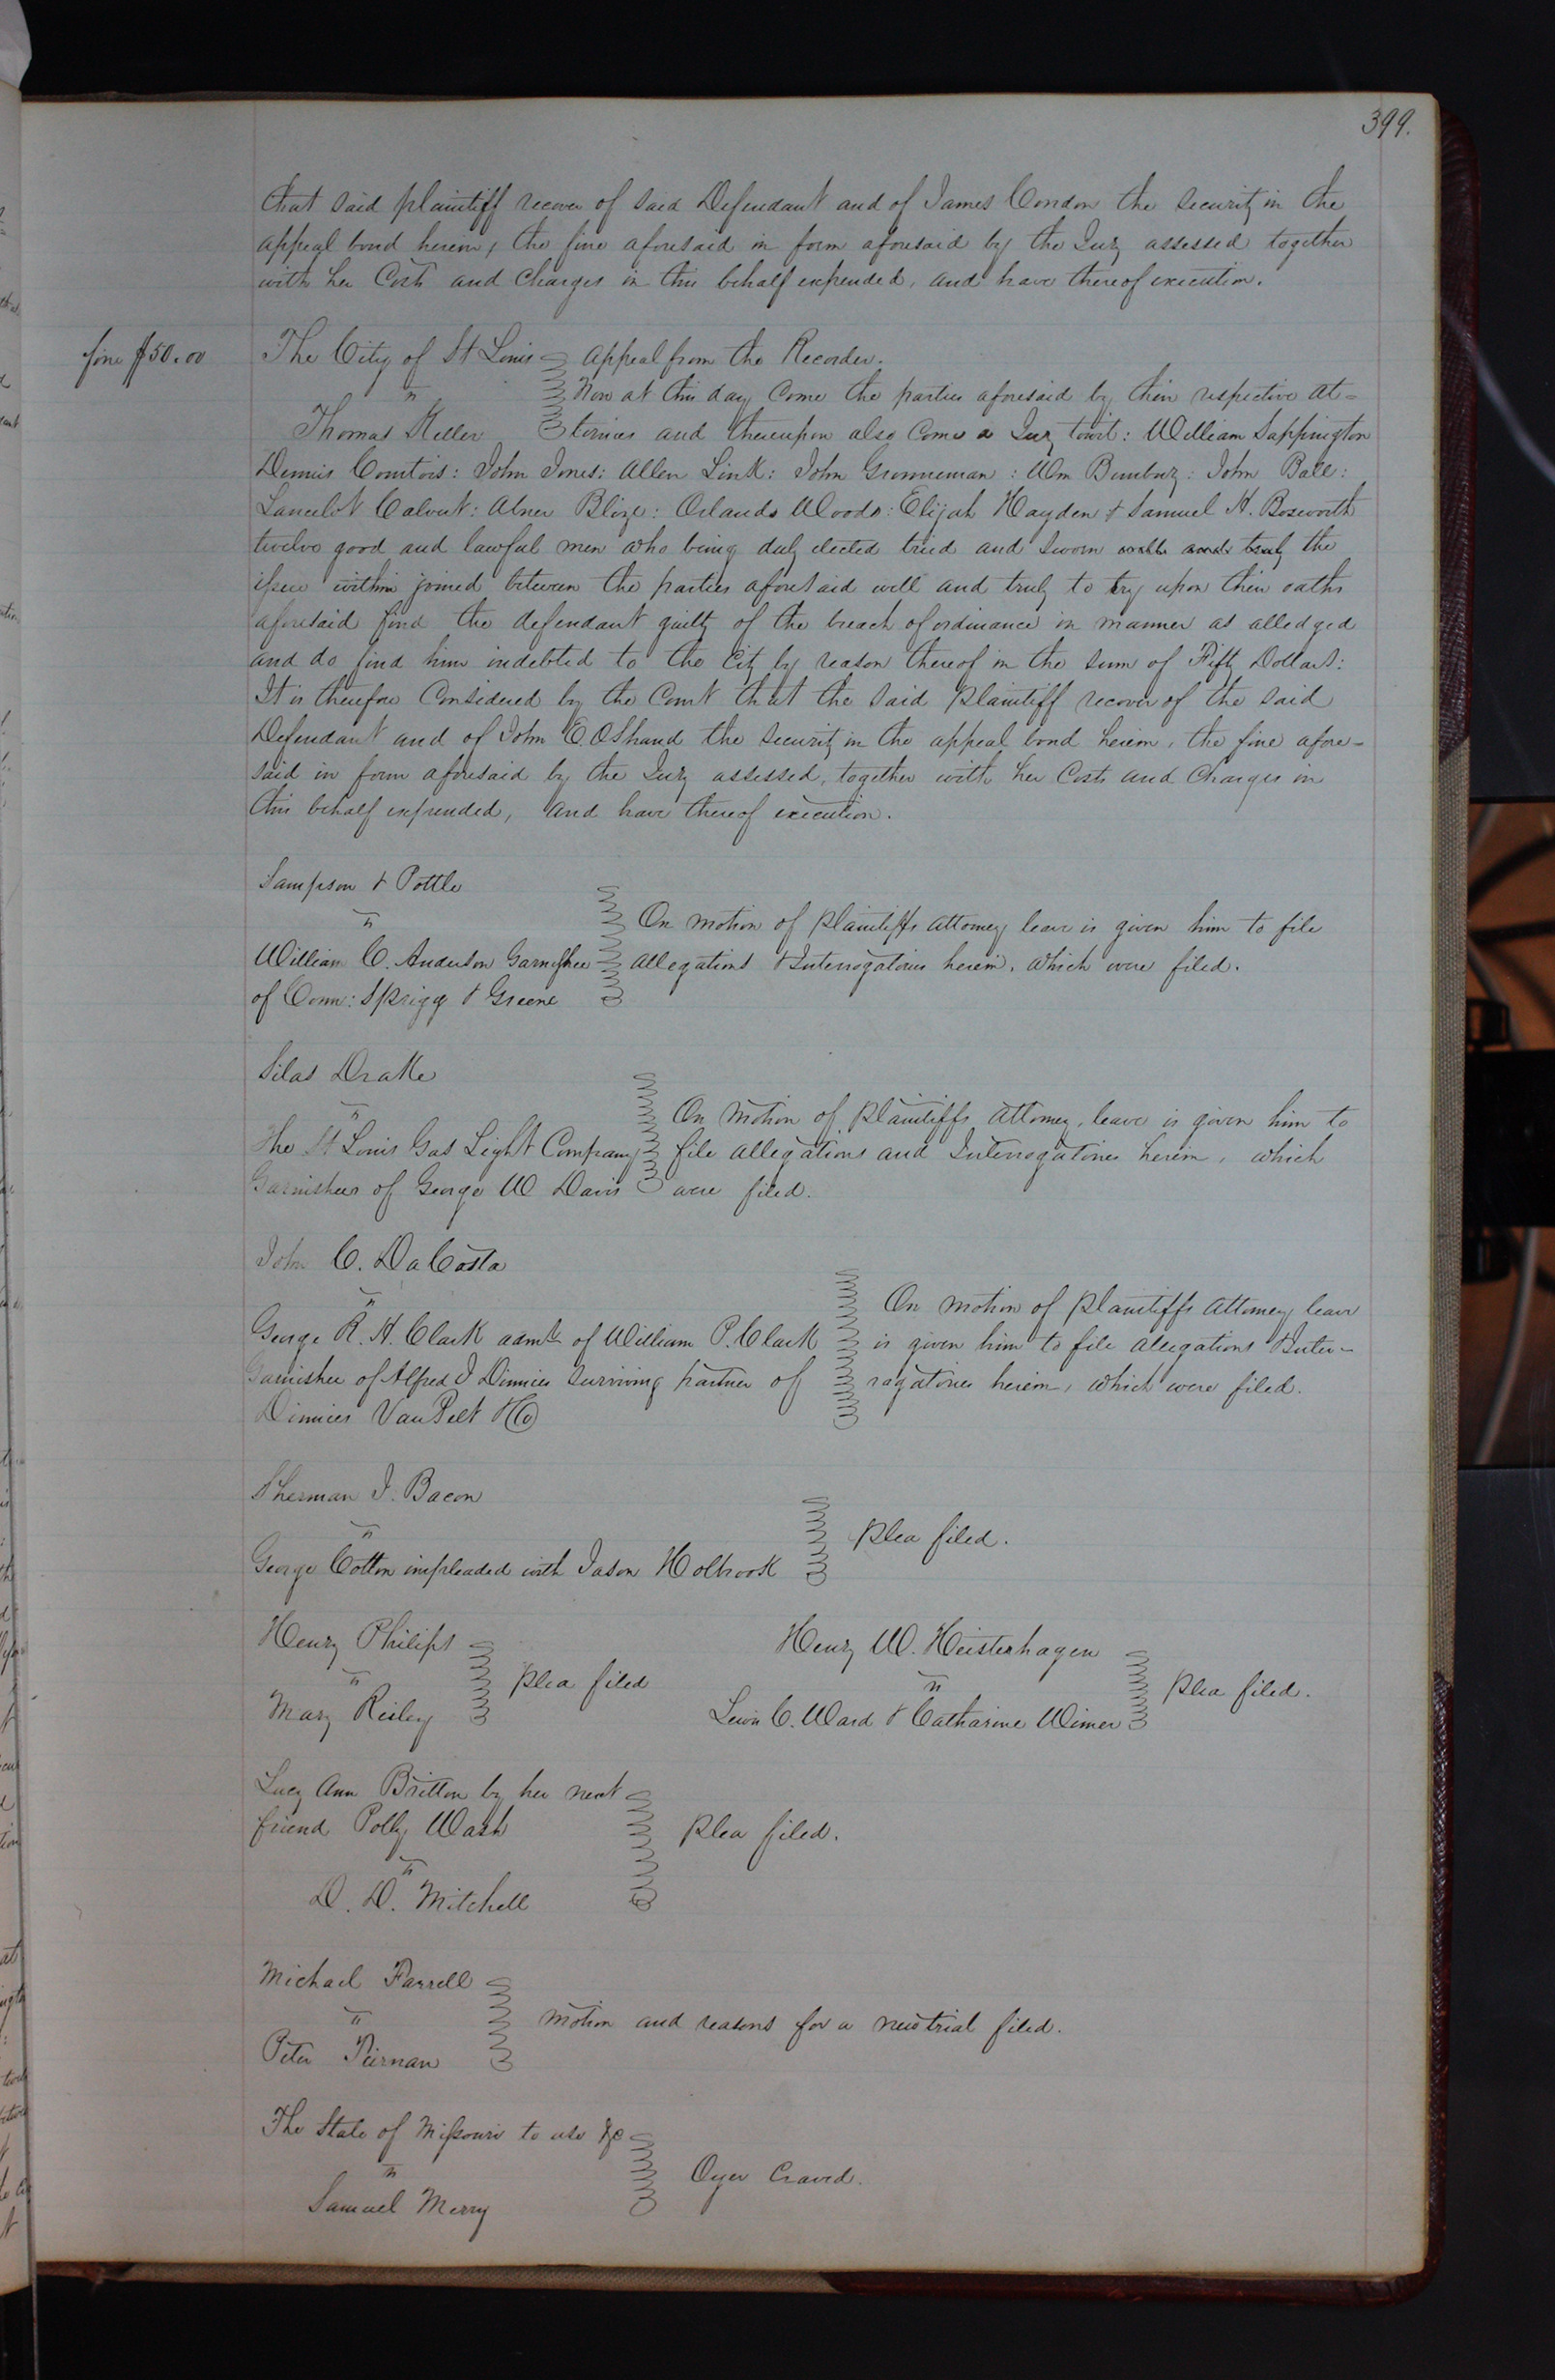 399.
that said plaintiff recover of said Defendant and of James Condon the security in the
appeal bond herein, the fine aforesaid in form aforesaid by the Jury assessed together
with her Costs and Charges in this behalf expended, and have thereof execution.
fine $50.00
The City of St Louis
vs
Thomas Keller
Appeal from the Recorder.
Now at this day Come the parties aforesaid by their respective at=
tornies and thereupon also Comes a Jury towit: William Sappington
Dennis Courtois: John Jones: Allen Link: John Gronneman: Wm Bunbury: John Ball:
Lancelot Calvert: Abner Blize: Orlando Woods: Elijah Hayden & Samuel H. Bosworth
twelve good and lawful men who being duly elected tried and sworn truly the
issue within joined between the parties aforesaid well and truly to try upon their oaths
aforesaid find the defendant guilty of the breach of ordinance in manner as alledged
and do find him indebted to the City by reason thereof in the sum of Fifty Dollars:
It is therefore Considered by the Court that the said plaintiff recover of the said
Defendant and of John the security in the appeal bond herein, the fine afore=
said in form aforesaid by the Jury assessed, together with her Costs and Charges in
this behalf expended, and have thereof execution.
Sampson & Pottle
vs
William C. Anderson Garnishee
of Conn: Sprigg & Greene
On motion of plaintiffs attorney leave is given him to file
allegations & Interrogatories herein, which were filed.
Silas Drake
vs
The St Louis Gas Light Company
Garnishees of George W Davis
On motion of plaintiffs attorney, leave is given him to
file allegations and Interrogatories herein, which
were filed.
John C. DaCosta
vs
George R. H. Clark admr of William P. Clark
Garnishee of Alfred J Dinnies surviving partner of
Dinnies VanPelt & Co
On motion of plaintiffs attorney leave
is given him to file allegations & Inter=
ragatories herein, which were filed.
Sherman J. Bacon
vs
George Cotton impleaded with Jason Holbrook
plea filed.
Henry Philips
vs
Mary Risley
plea filed
Henry W. Heisterhagen
vs
Lewis C. Ward & Catharine Wimer
plea filed.
Lucy Ann Britton by her next
friend Polly Wash
vs
D. D. Mitchell
plea filed.
Michael Farrell
vs
Peter Teirnan
motion and reasons for a new trial filed.
The State of Missouri to use &c
vs
Samuel Merry
Oyer Craved.